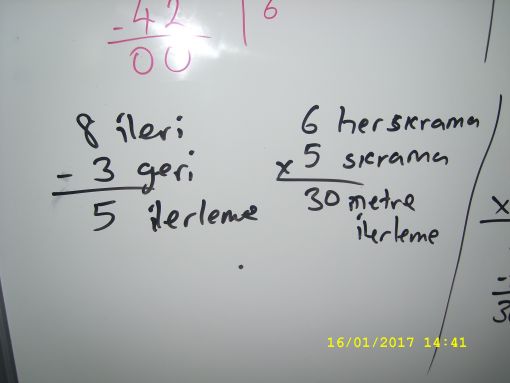 - 42 | 6
00
8 ileri
- 3 geri
5 ilerleme
6 her sıkrama
x 5 sıkrama
30 metre
ilerleme
x
16/01/2017 14:41